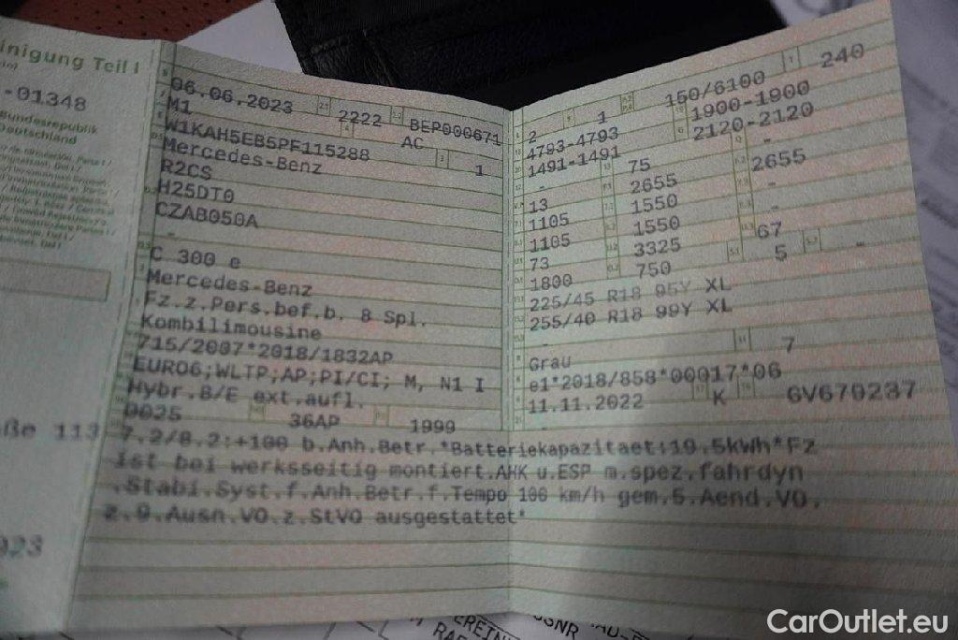 inigung Teil I
-01348
Bundesrepublik
Deutschland
06.06.2023 2222 BEP000671
M1 AC
W1KAH5EB5PF115288 1
Mercedes-Benz
R2CS
H25DT0
CZAB050A
-
C 300 e
Mercedes-Benz
Fz.z.Pers.bef.b. 8 Spl.
Kombilimousine
715/2007*2018/1832AP
EURO6;WLTP;AP;PI/CI; M, N1 I
Hybr.B/E ext.aufl.
0025 36AP 1999
2 1 150/6100 240
4793-4793 1900-1900
1491-1491 2120-2120
- 75 -
13 2655 2655
1105 1550 -
1105 1550 -
73 3325 67
1800 750 5 -
225/45 R18 95Y XL
255/40 R18 99Y XL
-
Grau 7
e1*2018/858*00017*06
11.11.2022 K GV670237
ße 113
7.2/8.2:+100 b.Anh.Betr.*Batteriekapazitaet:19.5kWh*Fz
ist bei werksseitig montiert.AHK u.ESP m.spez.fahrdyn
.Stabi.Syst.f.Anh.Betr.f.Tempo 100 km/h gem.5.Aend.VO.
z.9.Ausn.VO.z.StVO ausgestattet*
023
CarOutlet.eu